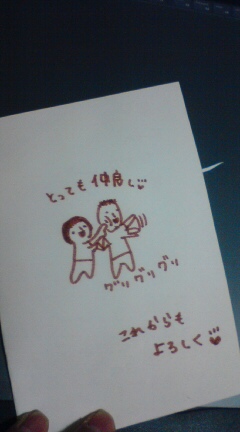 とっても仲良し
グリグリグリ
これからも
よろしく